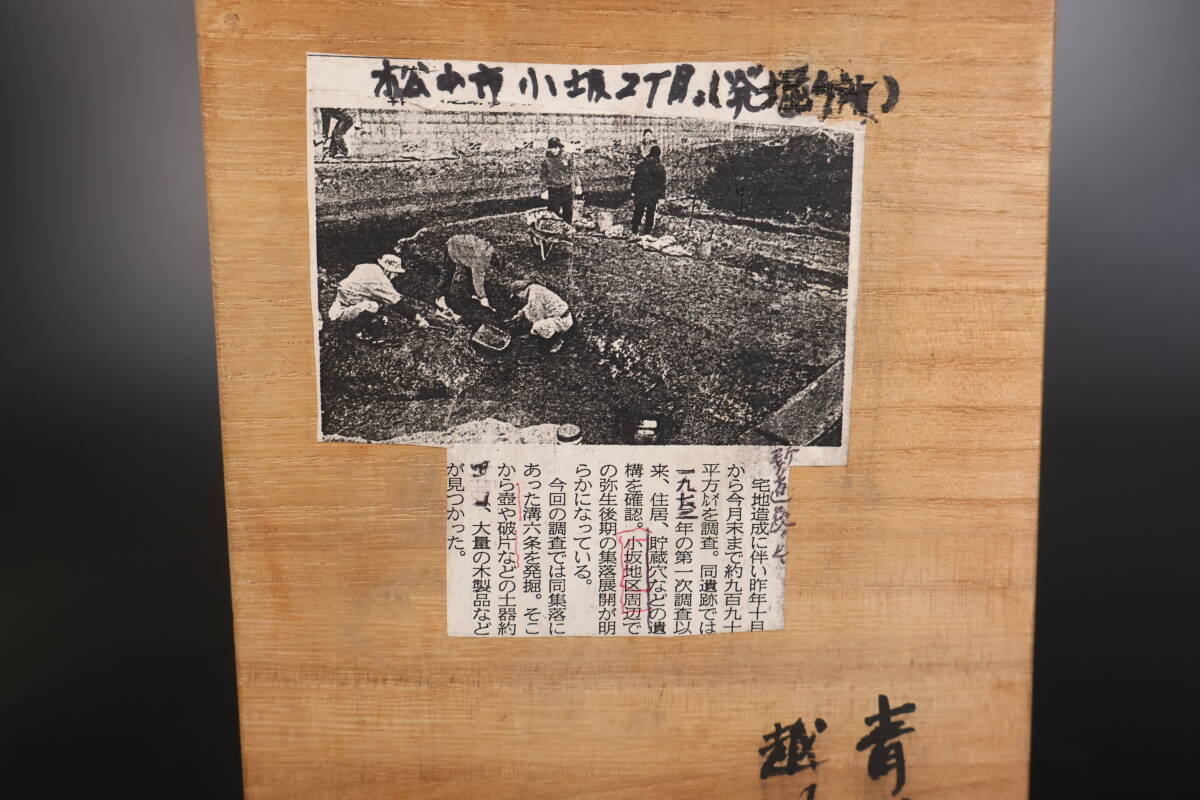 松山市小坂2丁目.(発掘個所)
宅地造成に伴い昨年十月
から今月末まで約九百九十
平方㍍を調査。同遺跡では
一九七三年の第一次調査以
来、住居、貯蔵穴などの遺
構を確認。小坂地区周辺で
の弥生後期の集落展開が明
らかになっている。
今回の調査では同集落に
あった溝六条を発掘。そこ
から壺や破片などの土器約
、大量の木製品など
が見つかった。
青
越